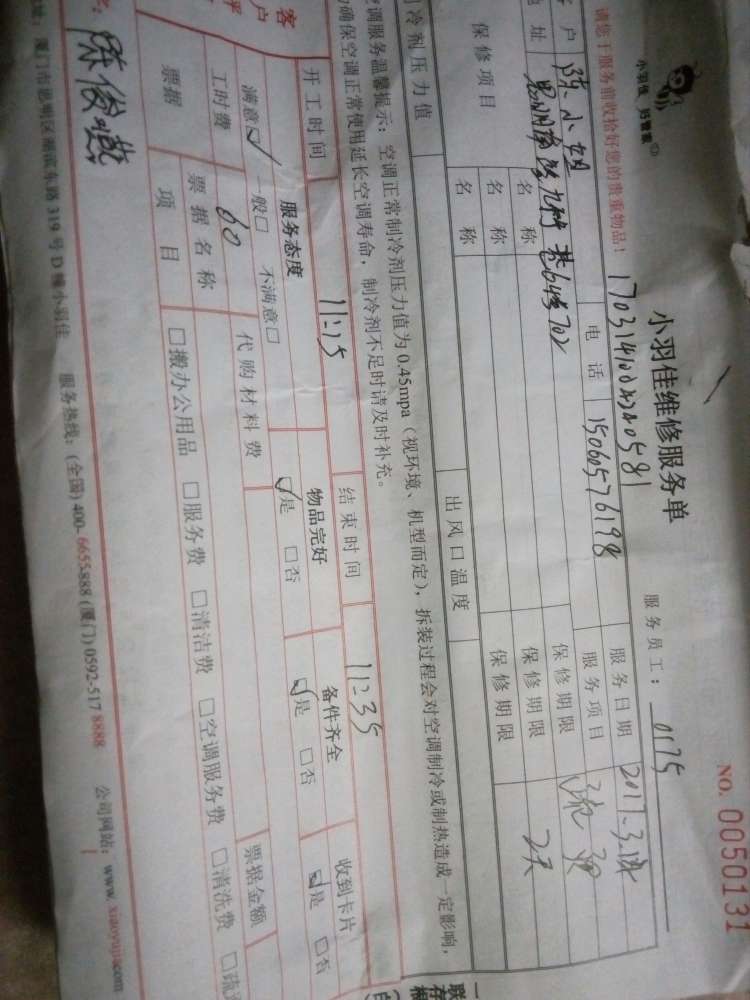 小羽佳 好管家
小羽佳维修服务单
NO. 0050131
服务员工: 0175
请您于服务前收拾好您的贵重物品!
户 陈小姐 电话 15060576198 服务日期 2017.3.14
地址 服务项目
保修项目 名称 保修期限 2天
名称 保修期限
名称 保修期限
冷剂压力值 出风口温度
调服务温馨提示: 空调正常制冷剂压力值为 0.45mpa (视环境、机型而定), 拆装过程会对空调制冷或制热造成一定影响,
确保空调正常使用延长空调寿命, 制冷剂不足时请及时补充。
开工时间 11:15 结束时间 11:35
客户 服务态度 物品完好 备件齐全 收到卡片
满意☑ 一般□ 不满意□ ☑是 □否 ☑是 □否 ☑是 □否
工时费 60 代购材料费 票据金额
票据 票据名称
项目 □搬办公用品 □服务费 □清洁费 □空调服务费 □清洗费
址: 厦门市思明区湖滨东路 319 号 D 幢小羽佳 服务热线: (全国) 400-6655-888 (厦门) 0592-517 8888 公司网站: www.xiaoyujia.com